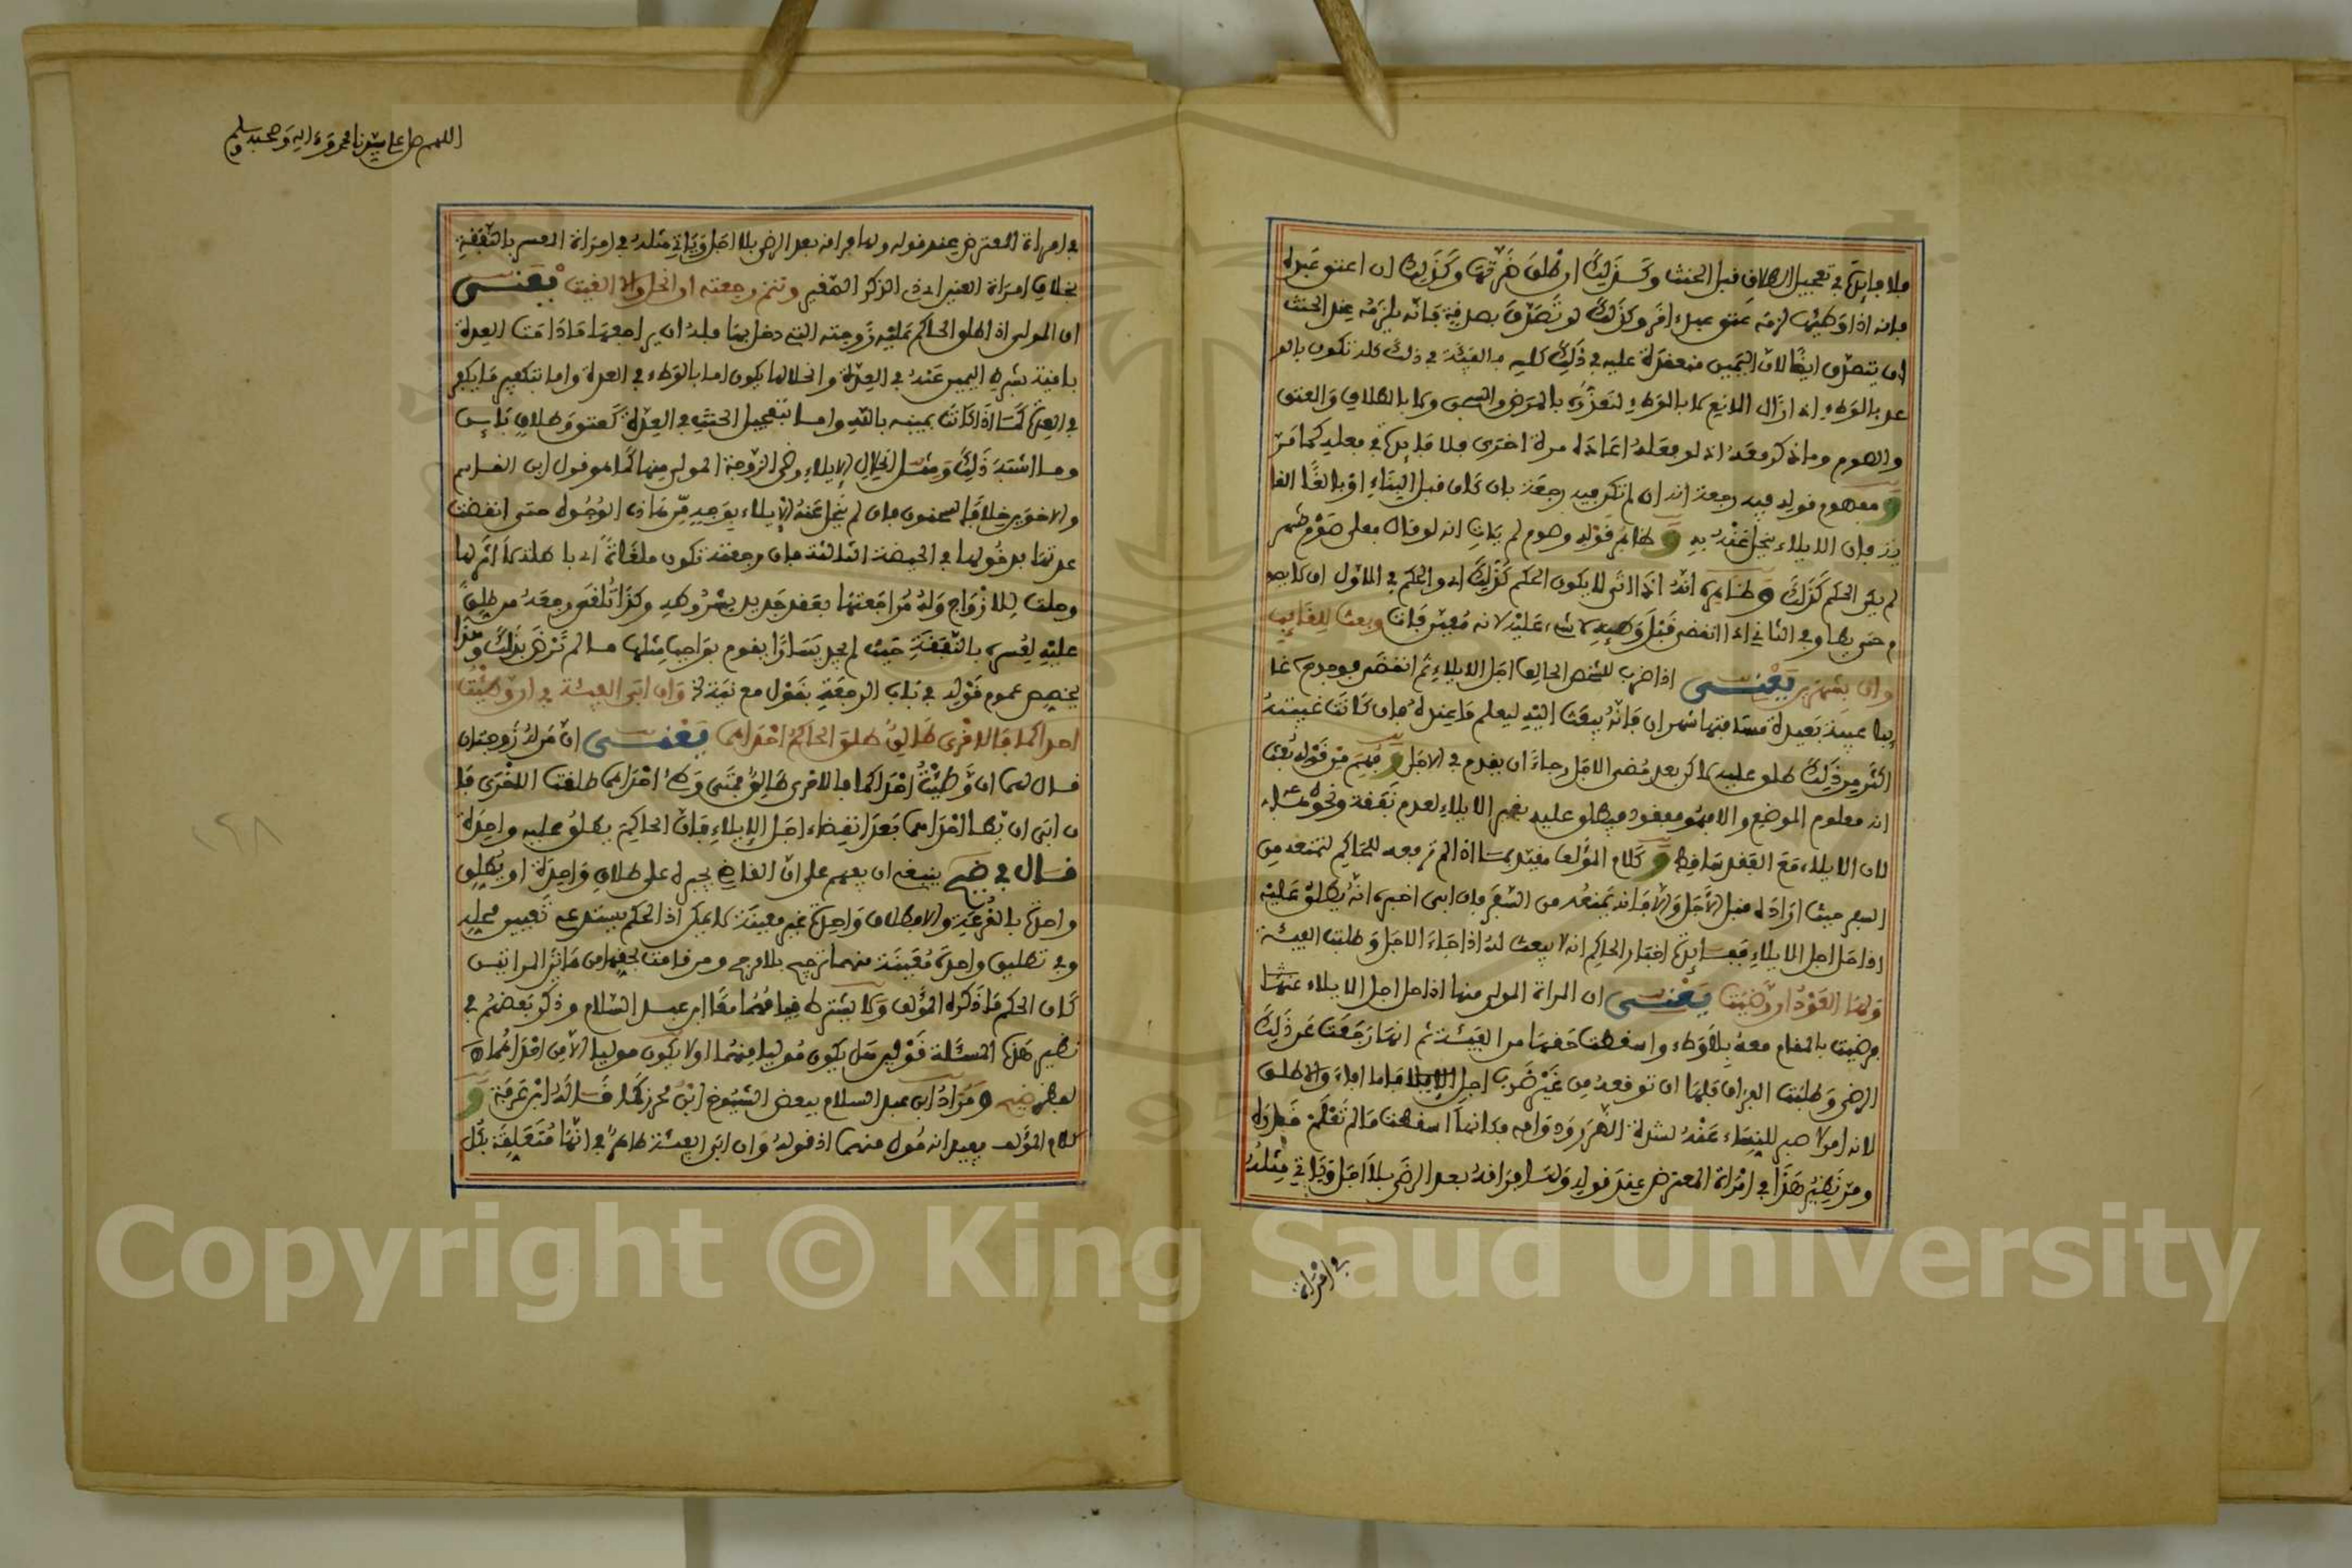 فلا فايدة في تعجيل الطلاق قبل الحنث وكذلك ان طلق ضرتها وكذلك ان اعتق عبده
فانه اذا وطئها لزمه عتق عبد اخر وكذلك لو تصدق بصدقة فانه يلزمه بعد الحنث
ان يتصدق ايضا لان اليمين منعقدة عليه في ذلك كله فالفيئة في ذلك كله تكون بالو
عد بالوطء اذا زال المانع لا بالوطء لتعذره بالمرض والسجن ولا بالطلاق والعتق
والصوم وما ذكر معه اذ لو فعله اعاده مرة اخرى فلا فايدة في فعله كما مر
و مفهوم قوله فيه رجعة انه ان لم تكن فيه رجعة بان كان قبل البناء او بالغا الغا
ية فان الايلاء ينحل عنه به و ظاهر قوله وصوم لم يات انه لو قال فعلي صوم شهر
لم يكن الحكم كذلك و ظاهره انه اذا اتى لا يكون الحكم كذلك اذ والحكم في الاول ان لا يصو
م حتى يطا وفي الثاني اذا انقضى قبل وطئه لا شيء عليه لانه معين فات وبعث للغايب
وان بشهرين يعني اذا ضرب للشخص الحالف اجل الايلاء ثم انقضى فوجدوه غا
يبا غيبة بعيدة مسافتها شهران فانه يبعث اليه ليعلم ما عنده فان كانت غيبته
اكثر من ذلك طلق عليه لاكن بعد مضي الاجل رجاء ان يقدم في الاجل و فهم من قوله بعث
انه معلوم الموضع والا فهو مفقود فيطلق عليه بغير الايلاء لعدم نفقة ونحوه
لان الايلاء مع الفقد ساقط و كلام المؤلف مقيد بما اذا لم ترفعه للحاكم لتمنعه من
السفر حيث اراده قبل الاجل والا فانه يمنعه من السفر فان ابى اخبره انه يطلق عليه
اذا حل اجل الايلاء ففايدة اخبار الحاكم انه لا يبعث له اذا جاء الاجل وطلبت الفيئة
ولها العود ان رضيت يعني ان المراة المولى منها اذا حل اجل الايلاء عنها
فرضيت بالمقام معه بلا وطء واسقطت حقها من الفيئة ثم انها رجعت عن ذلك
الرضى وطلبت الفراق فلها ان توقفه من غير ضرب اجل الايلا فاما فاء والا طلق
لانه امر لا صبر للنساء عنه لشدة الضرر ودوامه فكانها اسقطت ما لم تعلم قدره
ومر نظير هذا في امراة المعترض عند قوله ولها فراقه بعد الرضى بلا اجل وياتي مثله
في امراة
اللهم صل على سيدنا محمد وءاله وصحبه وسلم
في امراة المعترض عند قوله ولها فراقه بعد الرضى بلا اجل وياتي مثله في امراة المعسر بالنفقة
بخلاف امراة العنين اي ذي الذكر الصغير وتتم رجعته ان انحل والا الغيت يعني
ان المولي اذا طلق الحاكم عليه زوجته التي دخل بها فله ان يراجعها ما دامت العدة
باقية بشرط اليمين عنه في العدة وانحلالها يكون اما بالوطء في العدة واما بتكفير ما يكفر
في العدة كما اذا كانت يمينه بالله واما بتعجيل الحنث في العدة كعتق وطلاق باين
وما اشبه ذلك ومثل انحلال الايلاء رضى الزوجة المولى منها كما هو قول ابن القاسم
والاخوين خلافا لسحنون فان لم ينحل عنه الايلاء بوجه من هاذه الوجوه حتى انقضت
عدتها بدخولها في الحيضة الثالثة فان رجعته تكون ملغاة اي باطلة لا اثر لها
وحلت للازواج وله مراجعتها بعقد جديد بشروطه وكذا تلغى رجعة من طلق
عليه لعسره بالنفقة حيث لم يجد يسارا يقوم بواجب مثلها ما لم ترض بذلك وهذا
يخصص عموم قوله في باب الرجعة بقول مع نية وان ابى الفيئة في ان وطئت
احداكما فالاخرى طالق طلق الحاكم احداهما يعني ان من له زوجتان
قال لهما ان وطئت احداكما فالاخرى طالق فمتى وطئ احداهما طلقت الاخرى فا
ن ابى ان يطا احداهما بعد انقضاء اجل الايلاء فان الحاكم يطلق عليه واحدة
قال في ضيح ينبغي ان يفهم على ان القاضي يجبره على طلاق واحدة او يطلق
واحدة بالقرعة والا فطلاق واحدة غير معينة لا يمكن اذ الحكم يستدعي تعيين محله
وفي تطليق واحدة معينة منهما ترجيح بلا مرجح ومن قامت بحقها من هاتين المراتين
كان الحكم ما ذكره المؤلف ولا يشترط قيامهما معا ابن عبد السلام وذكر بعضهم في
نظير هذه المسئلة قولين هل يكون موليا منهما او لا يكون موليا الا من احداهما
لفظ ضيح ومراد ابن عبد السلام ببعض الشيوخ ابن محرز كما قاله ابن عرفة و
كلام المؤلف يفيد انه مول منهما اذ قوله وان ابى الفيئة ظاهر في انها متعلقة بكل
Copyright © King Saud University